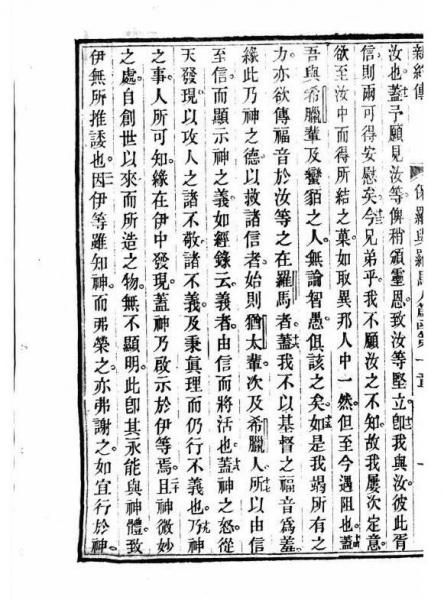 保羅與羅馬人
汝也。蓋予願見汝等俾稍頒靈恩。致汝等堅立。即我與汝彼此胥
信則兩可得安慰矣。今兄弟乎。我不願汝之不知。故我屢次定意
欲至汝中而得所結之菓。如取異邦人中一然。但至今遇阻也。蓋
吾與希臘輩及蠻貊之人。無論智愚。俱該之矣。如是我竭所有之
力。亦欲傳福音於汝等之在羅馬者。蓋我不以基督之福音為羞。
緣此乃神之德以救諸信者。始則猶太輩。次及希臘人。所以由信
至信而顯示神之義。如經錄云。義者由信而將活也。蓋神之怒從
天發現以攻人之諸不敬諸不義及秉真理而仍行不義也。乃神
之事人所可知。緣在伊中發現。蓋神乃啟示於伊等焉。且神微妙
之處。自創世以來而所造之物。無不顯明。此即其永能與神體致
伊無所推諉也。因伊等雖知神而弗榮之。亦弗謝之。如宜行於神。